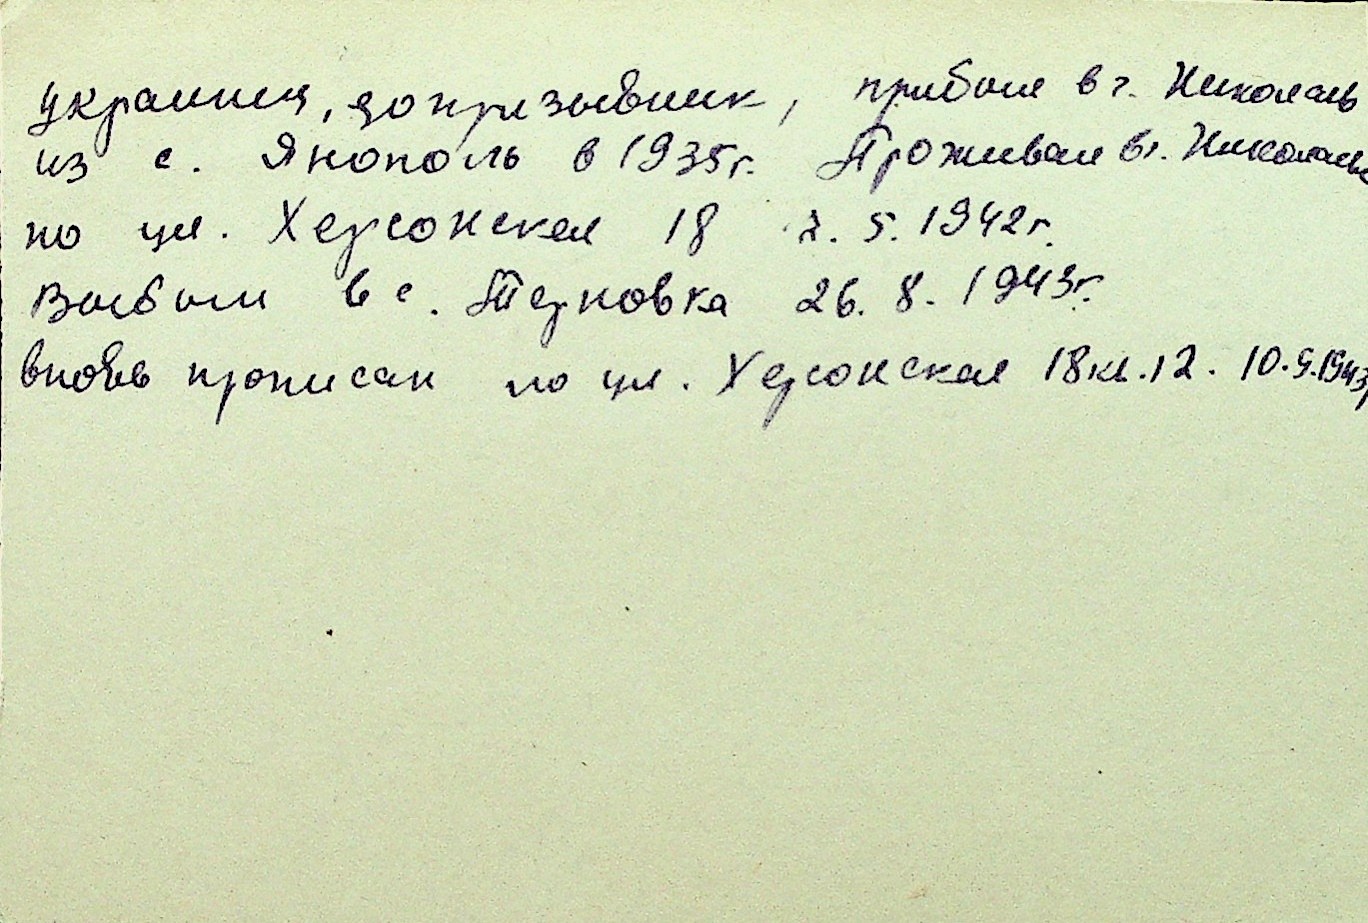 украинец, допризывник, прибыл в г. Николаев
из с. Янополь в 1935г. Проживал в г. Николаеве
по ул. Херсонская 18 2. 5. 1942г.
Выбыл в с. Терновка 26. 8. 1943г.
вновь прописан по ул. Херсонская 18 кв. 12. 10.9.1943г